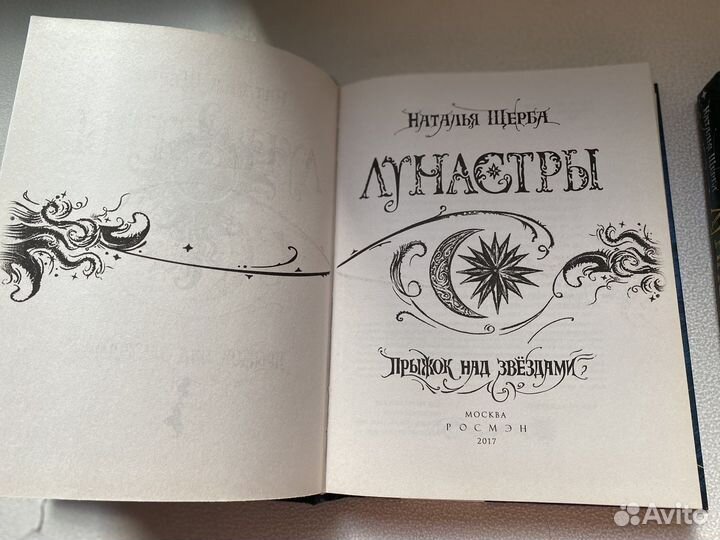 Наталья Щерба
Лунастры
Прыжок над звёздами
МОСКВА
РОСМЭН
2017
Наталья Щерба
Avito